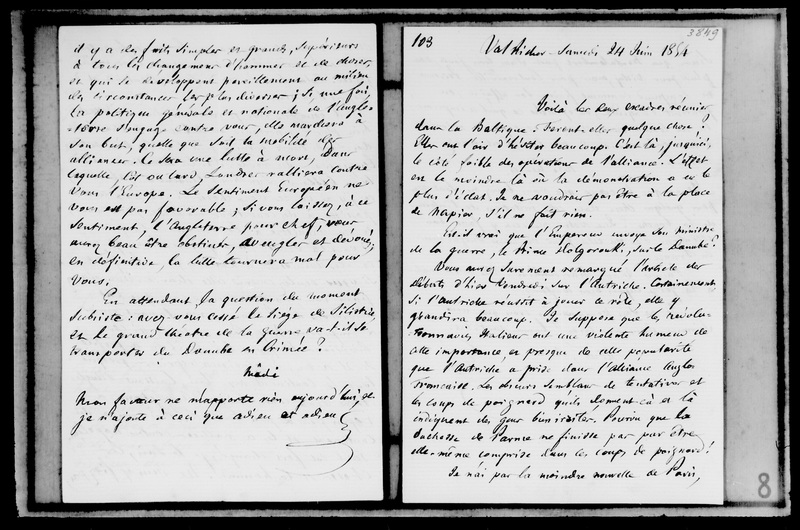 il y a des faits simples et grands, supérieurs
à tous les changements d'hommes et de choses,
et qui se développent pareillement au milieu
des circonstances les plus diverses ; si une fois
la politique générale et nationale de l'Angle-
-terre s'engage contre vous, elle marchera à
son but, quelle que soit la mobilité des
alliances. Ce sera une lutte à mort, dans
laquelle, tôt ou tard, Londres ralliera contre
vous l'Europe. Le sentiment Européen ne
vous est pas favorable ; si vous laissez, à ce
sentiment, l'Angleterre pour chef, vous
aurez beau être obstinés, aveugles et dévoués,
en définitive, la lutte tournera mal pour
vous.
En attendant la question du moment
subsiste : avez-vous cessé le siège de Silistrie,
et le grand théâtre de la guerre va-t-il se
transporter du Danube en Crimée ?
Midi
Mon facteur ne m'apporte rien aujourd'hui, et
je n'ajoute à ceci que adieu et adieu
3849
103
Val Richer - Samedi 24 Juin 1854
Voilà les deux escadres réunies
dans la Baltique. Feront-elles quelque chose ?
Elles ont l'air d'hésiter beaucoup. C'est là, jusqu'ici,
le côté faible des opérations de l'alliance. L'effet
est le moindre là où la démonstration a eu le
plus d'éclat. Je ne voudrais pas être à la place
de Napier, s'il ne fait rien.
Est-il vrai que l'Empereur envoye son ministre
de la guerre, le Prince Dolgorouki, sur le Danube ?
Vous avez surement remarqué l'article des
Débats d'hier Vendredi sur l'Autriche. Certainement,
si l'Autriche réussit à jouer ce rôle, elle y
grandira beaucoup. Je suppose que les révolu-
-tionnaires Italiens ont une violente humeur de
cette importance, et presque de cette popularité
que l'Autriche a prise dans l'alliance Anglo-
Française. Les obscurs semblants de tentatives et
les coups de poignard qui éclatent çà et là
indiquent des gens bien irrités. Pourvu que la
Duchesse de Parme ne finisse par par être
elle-même comprise dans les coups de poignard !
Je n'ai pas la moindre nouvelle de Paris,
8